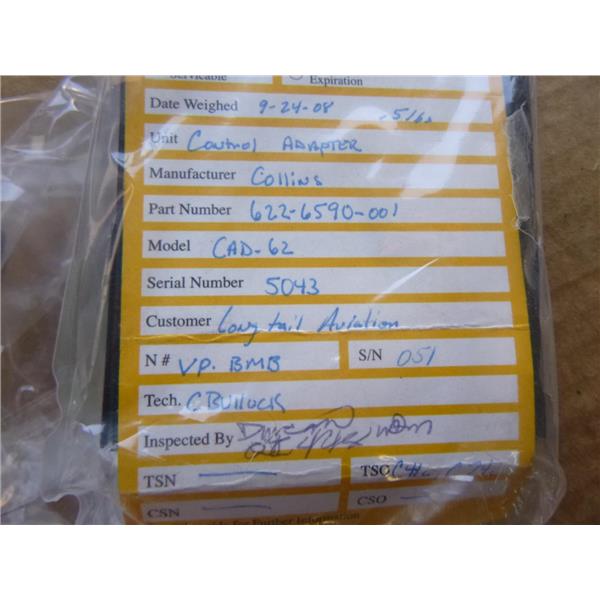 Serviceable Expiration
Date Weighed 9-24-08 .5 lbs
Unit Control ADAPTER
Manufacturer Collins
Part Number 622-6590-001
Model CAD-62
Serial Number 5043
Customer Longtail Aviation
N # VP. BMB S/N 051
Tech. C Bullock
Inspected By
TSN — TSO
CSN — CSO —
for Further Information